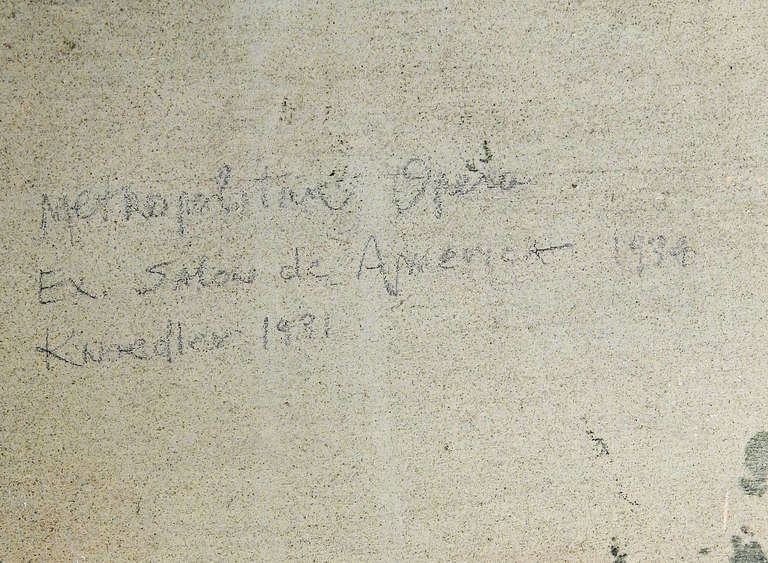 Metropolitan Opera
Ex. Salon de America 1934
Knoedler 1931